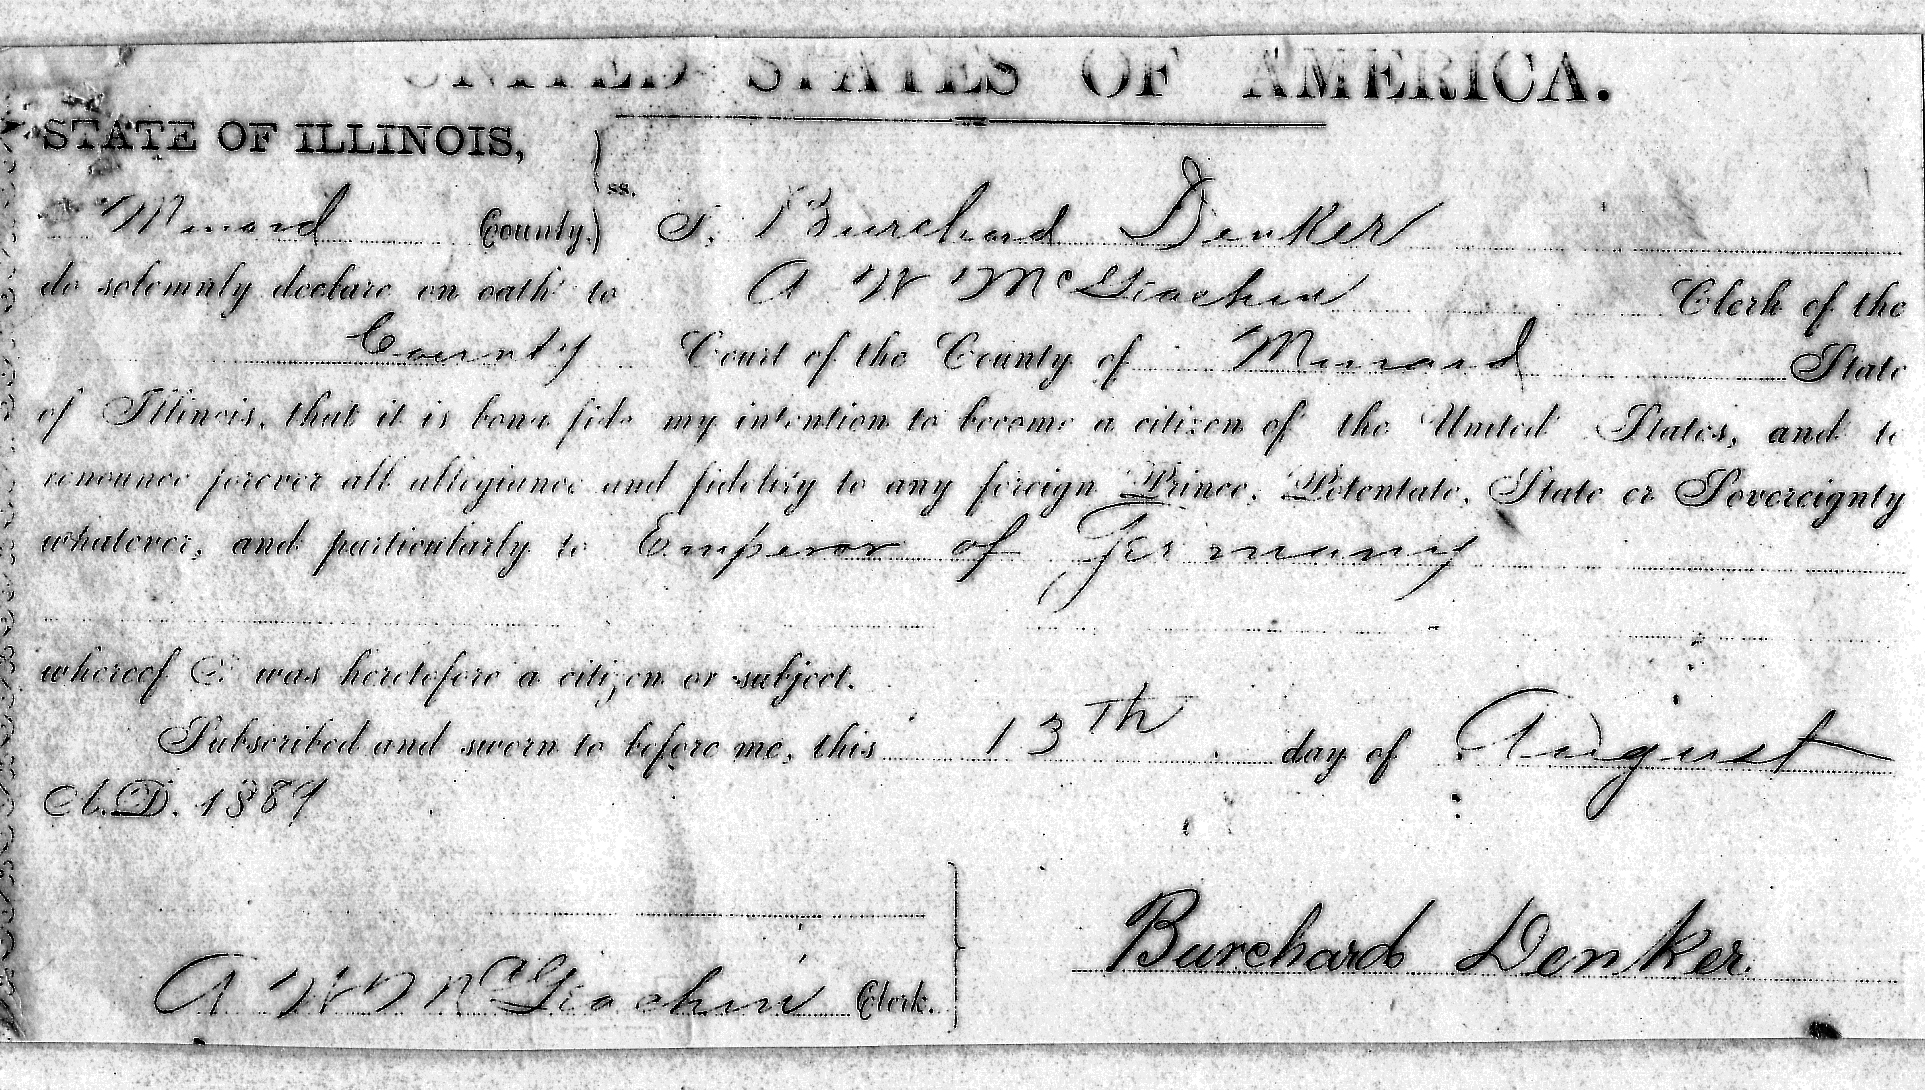 UNITED STATES OF AMERICA.
STATE OF ILLINOIS,
ss.
Menard County. I, Burchard Denker
do solemnly declare on oath to A W McGiachin Clerk of the
County Court of the County of Menard State
of Illinois, that it is bona fide my intention to become a citizen of the United States, and to
renounce forever all allegiance and fidelity to any foreign Prince, Potentate, State or Sovereignty
whatever, and particularly to Emperor of Germany
whereof I was heretofore a citizen or subject.
Subscribed and sworn to before me, this 13th day of August
A.D. 1889
Burchard Denker
A W McGiachin Clerk.